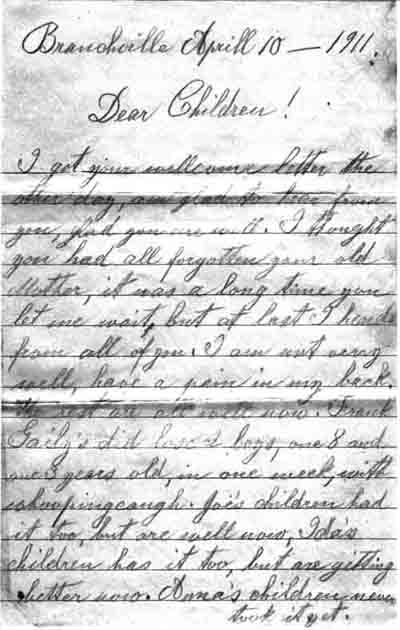 Branchville Aprill 10 — 1911.
Dear Children!
I got your wellcome letter the
other day, am glad to hear from
you, glad you are well. I thought
you had all forgotten your old
Mother, it was a long time you
let me wait, but at last I heard
from all of you. I am not verry
well, have a pain in my back.
The rest are all well now. Frank
did loose 2 boys, one 8 and
one 3 years old, in one week, with
whoopingcaugh. Joe's children had
it too, but are well now, Ida's
children has it too, but are getting
better now. Anna's children never
took it yet.